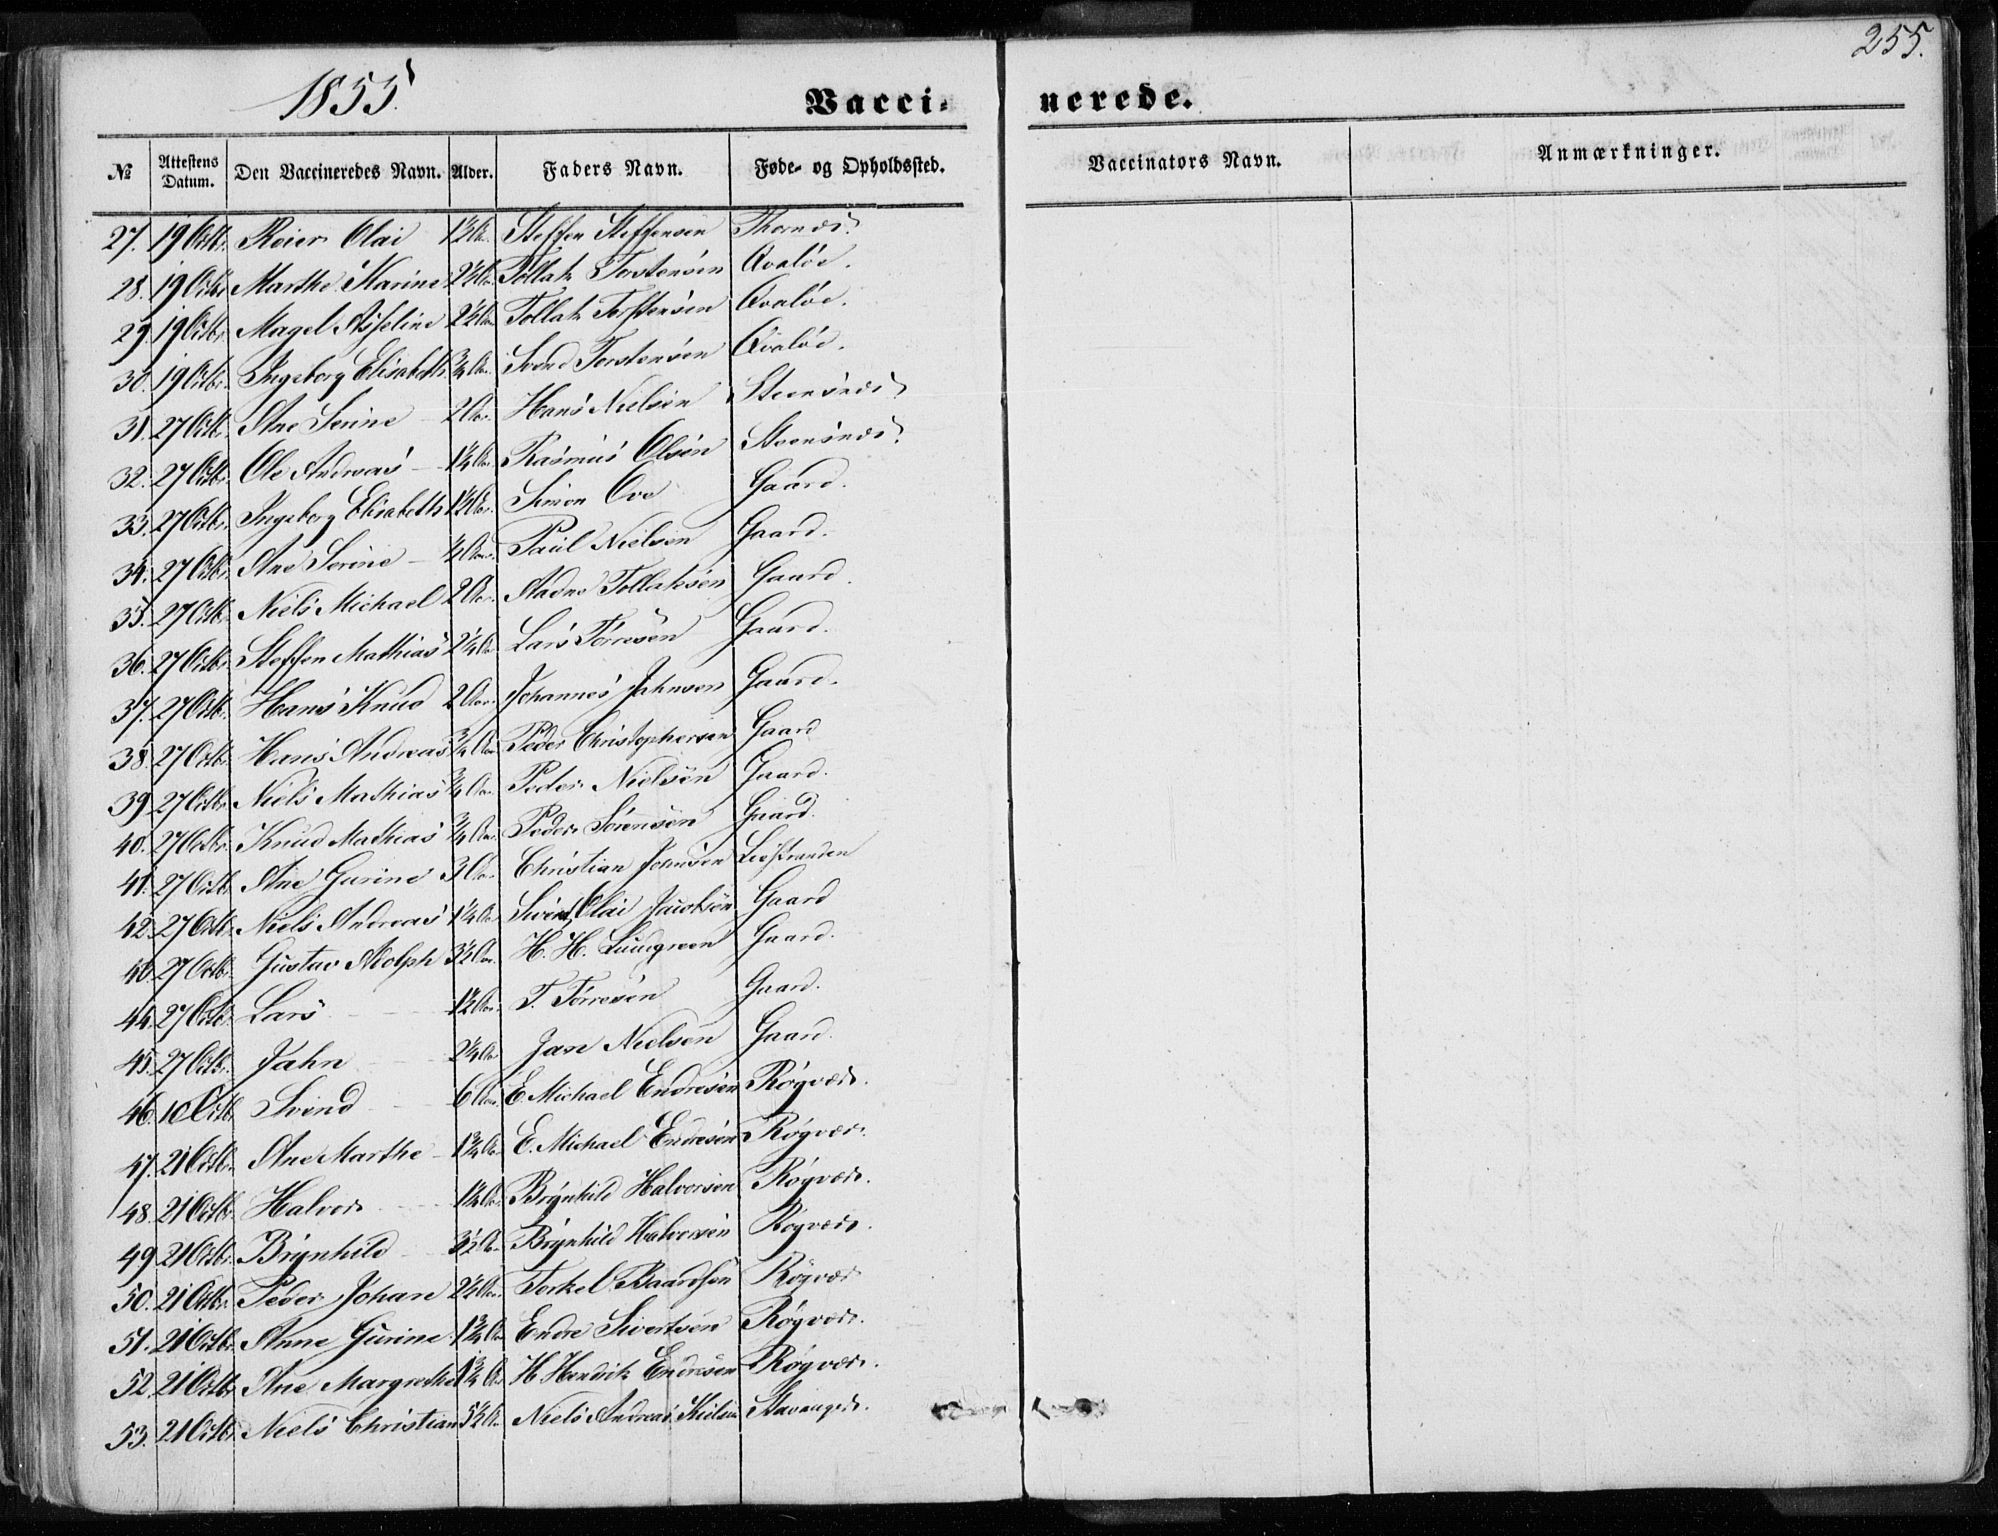 255.
1855.
Vacci- nerede.
№ Attestens Datum. Den Vaccineredes Navn. Alder. Faders Navn. Føde- og Opholdssted. Vaccinators Navn. Anmærkninger.
27. 19 Octb. Reier Olai 1½ Aar Steffen Steffensen Thornæs.
28. 19 Octbr. Marthe Karine 2¼ Aar Tollak Torstensen Qvaløe.
29. 19 Octbr. Magel Asseline 2½ Aar Tollak Torstensen Qvaløe.
30. 19 Octbr. Ingeborg Elisabeth ¾ Aar Svend Torstensen Qvaløe.
31. 27 Octb. Ane Serine 2 Aar. Hans Nielsen Steensnæs
32. 27 Octb. Ole Andreas 1¼ Aar. Rasmus Olsen Steensnæs.
33. 27 Octbr. Ingeborg Elisabeth 1½ Aar. Simon Ove Gaard.
34. 27 Octbr. Ane Serine ¼ Aar Paul Nielsen Gaard.
35. 27 Octb. Niels Michael 2 Aar. Aadne Tollaksen Gaard.
36. 27 Octbr. Steffen Mathias 2¼ Aar Lars Torresen Gaard.
37. 27 Octb. Hans Knud 2 Aar. Johannes Jahnsen Gaard.
38. 27 Octb. Hans Andreas ¾ Aar Peder Christophersen Gaard
39. 27 Octbr. Niels Mathias ¾ Aar Peder Nielsen Gaard.
40. 27 Octbr. Knud Mathias ¾ Aar. Peder Sørensen Gaard.
41. 27 Octb. Ane Gurine 3 Aar. Christian Johnsen
42. 27 Octb. Niels Andreas 1¼ Aar Svend Olai Jacobsen Gaard
43. 27 Octb. Gustav Adolph 3½ Aar. H. H. Lundgreen Gaard.
44. 27 Octb. Lars 1½ Aar. T. Torresen Gaard.
45. 27 Octb. Jahn 2¼ Aar Jan Nielsen Gaard.
46. 10 Octb. Svend 6 Aar. E. Michael Endresen Røgvær.
47. 21 Octb. Ane Marthe 1¾ Aar. E. Michael Endresen Røgvær.
48. 21 Octb. Halvor 1¼ Aar Brynhild Halvorsen Røgvær.
49. 21 Octb. Brynhild 3½ Aar. Brynhild Halvorsen Røgvær.
50. 21 Octbr. Peder Johan 2¼ Aar. Torkel Baardsen Røgvær
51. 21 Octb. Anne Gurine 1¾ Aar Endre Sivertsen Røgvær.
52. 21 Octb. Ane Margrethe 1¾ Aar H Hendrik Endresen Røgvær.
53. 21 Octbr. Niels Christian 5½ Aar Niels Andreas Nielsen Stavanger.